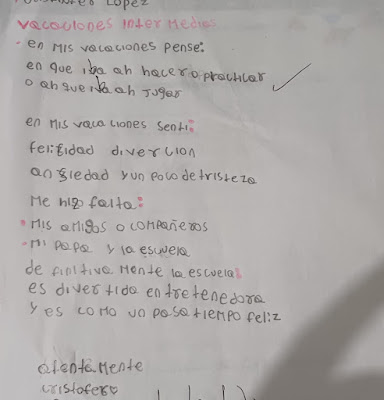 Lopez
vacaciones inter Medias
- en Mis vacaciones pense:
en que iba ah hacer o prachicar
o ah que iba ah jugar
en Mis vacaciones senti:
felizidad divercion
anziedad y un poco de tristeza
Me hizo falta:
• Mis amigos o compañeros
- Mi papa y la escuela
de finitiva Mente la escuela:
es divertida entretenedora
y es como un pasatiempo feliz
atentamente
cristofer